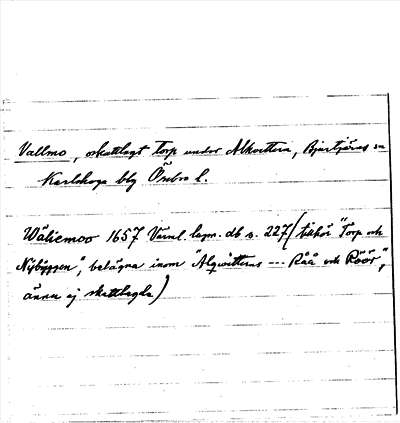 Vallmo, oskattlagt torp under Alkvettern, Bjurtjärns sn
Karlskoga bbg Örebro l.
Wäliemoo 1657 Värml. lagm. db s. 227 (tillhör "Torp och
Nybÿggen", belägna inom "Älgwitterns --- Råå och Röör",
ännu ej skattlagda)